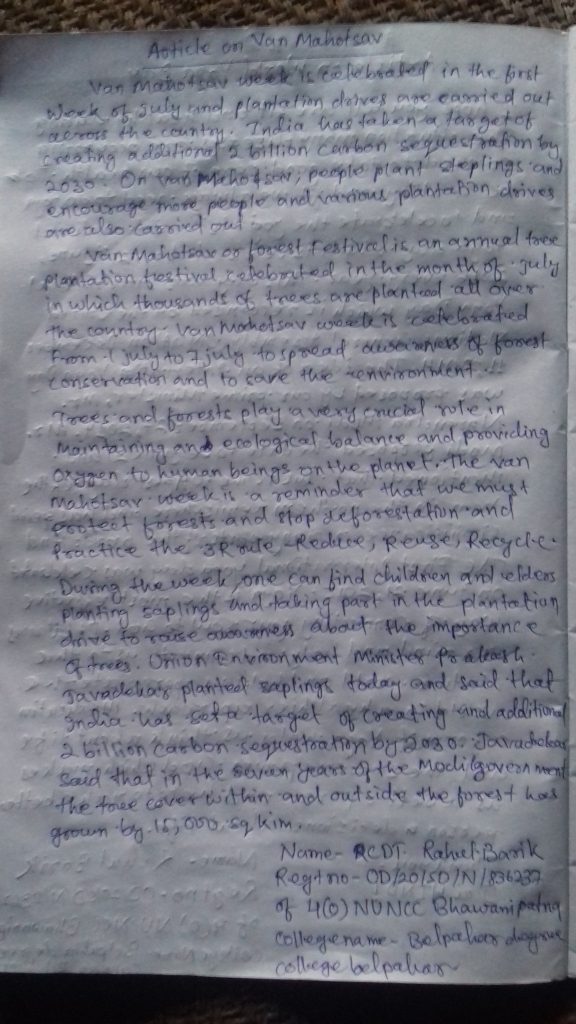 Article on Van Mahotsav
Van Mahotsav week is celebrated in the first
week of July and plantation drives are carried out
across the country. India has taken a target of
creating additional 2 billion carbon sequestration by
2030. On Van Mahotsav, people plant steplings and
encourage more people and various plantation drives
are also carried out.
Van Mahotsav or forest Festival is an annual tree
plantation festival celebrated in the month of July
in which thousands of trees are planted all over
the country. Van Mahotsav week is celebrated
From 1 July to 7 July to spread awareness of forest
conservation and to save the environment.
Trees and forests play a very crucial role in
maintaining and ecological balance and providing
oxygen to human beings on the planet. The Van
Mahotsav week is a reminder that we must
protect forests and stop deforestation and
Practice the 3R rule, Reduce, Reuse, Recycle.
During the week, one can find children and elders
planting saplings and taking part in the plantation
drive to raise awareness about the importance
of trees. Union Environment Minister Prakash
Javadekar planted saplings today and said that
India has set a target of creating and additional
2 billion carbon sequestration by 2030. Javadekar
said that in the seven years of the Modi government
the tree cover within and outside the forest has
grown by 15,000 sq kim.
Name- RCDT. Rahul Barik
Regt no- OD/20/SD/N/836237
of 4(O) NU NCC Bhawanipatna
College name- Belpahar degree
college belpahar